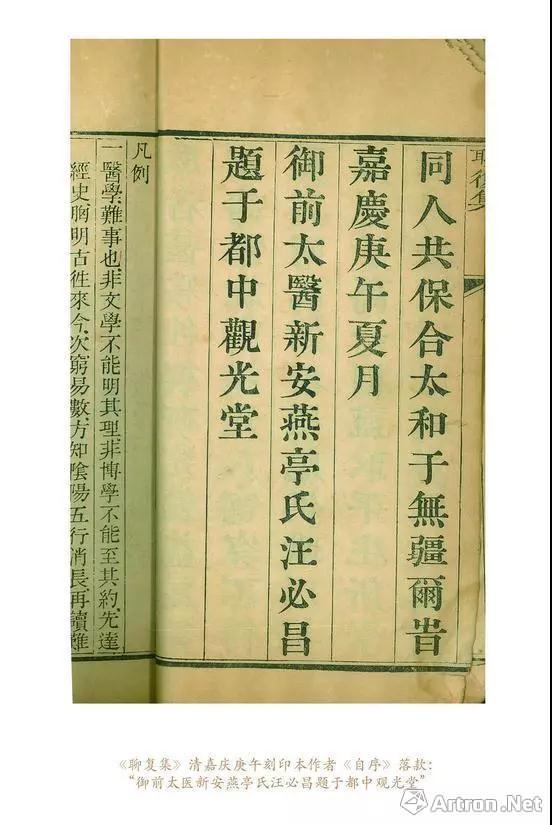 聊復集
同人共保合太和于無疆爾旹
嘉慶庚午夏月
御前太醫新安燕亭氏汪必昌
題于都中觀光堂
凡例
一醫學難事也非文學不能明其理非博學不能至其約先達
經史胸明古徃來今次窮易數方知陰陽五行消長再讀難
《聊复集》清嘉庆庚午刻印本作者《自序》落款：
“御前太医新安燕亭氏汪必昌题于都中观光堂”
Artron.Net